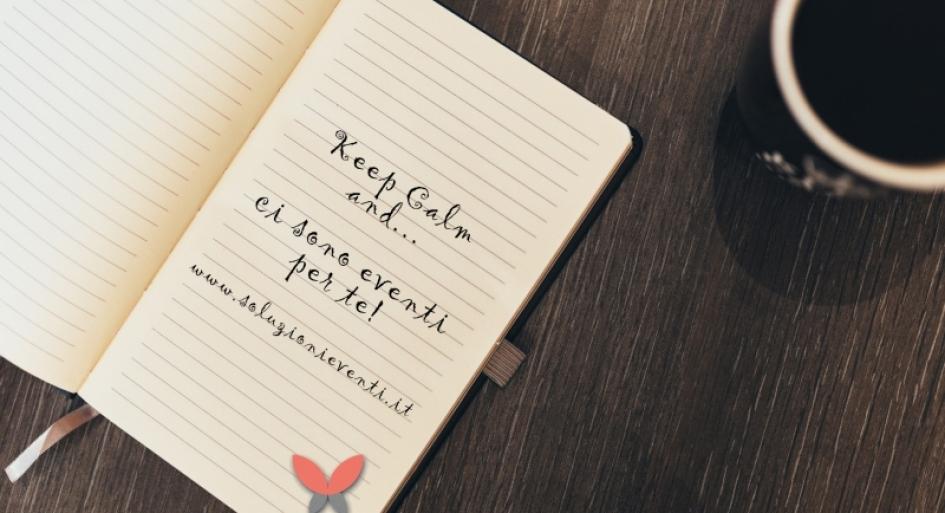 Keep Calm
and...
ci sono eventi
per te!
www.soluzionieventi.it